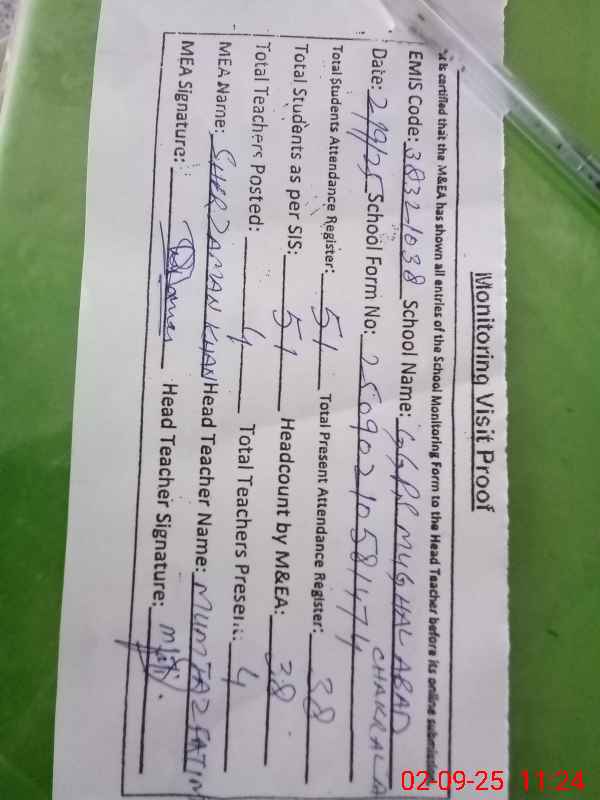 Monitoring Visit Proof
It is certified that the M&EA has shown all entries of the School Monitoring Form to the Head Teacher before its online submission
EMIS Code: 38321038 School Name: GGPS MUGHAL ABAD
CHAKRALA
Date: 2/9/25 School Form No: 25090210581474
Total Students Attendance Register: 51 Total Present Attendance Register: 38
Total Students as per SIS: 51 Headcount by M&EA: 38
Total Teachers Posted: 4 Total Teachers Present: 4
MEA Name: SHER ZAMAN KHAN Head Teacher Name: MUMTAZ FATIM
MEA Signature: Head Teacher Signature:
02-09-25 11:24